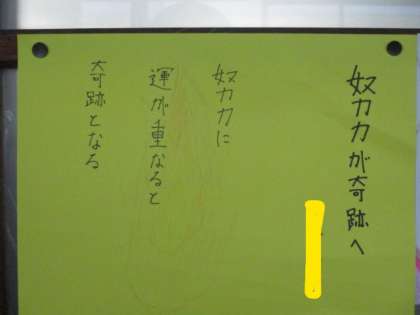 努力が奇跡へ
努力に
運が重なると
奇跡となる